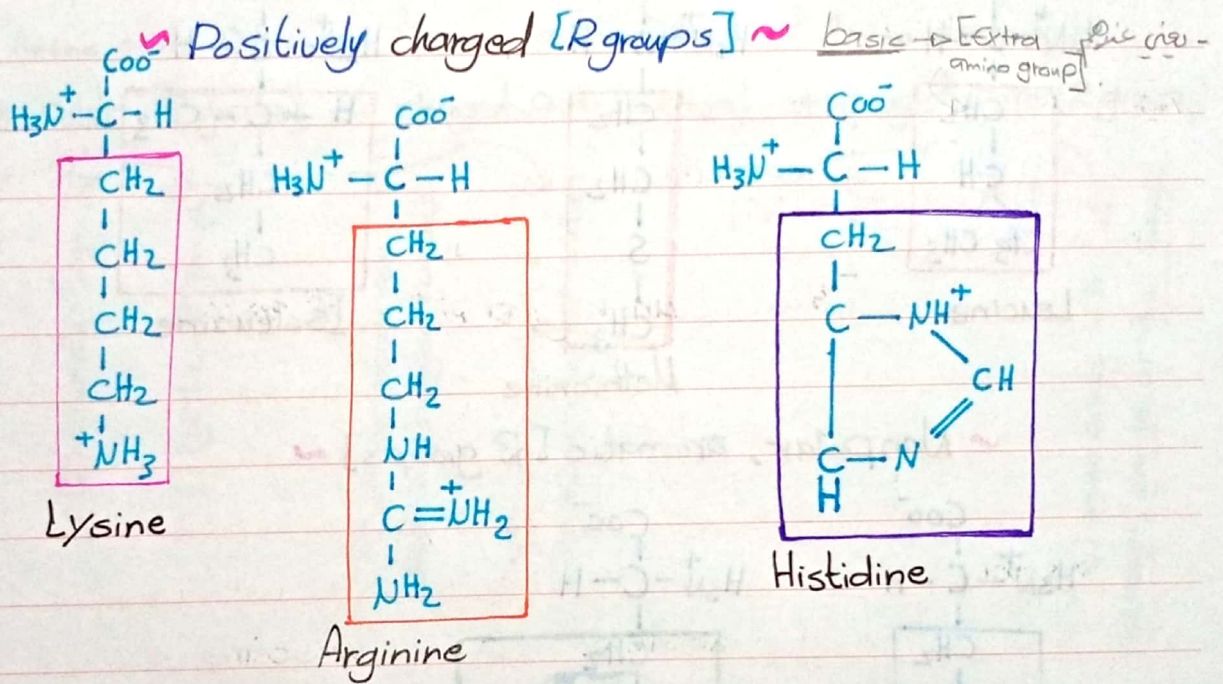 ~ Positively charged [R groups] ~ basic → [Extra
amino group].
Coo⁻
H₃N⁺–C–H
CH₂
CH₂
CH₂
CH₂
⁺NH₃
Lysine
Coo⁻
H₃N⁺–C–H
CH₂
CH₂
CH₂
NH
C=N⁺H₂
NH₂
Arginine
Coo⁻
H₃N⁺–C–H
CH₂
C–NH⁺
CH
C–N
H
Histidine